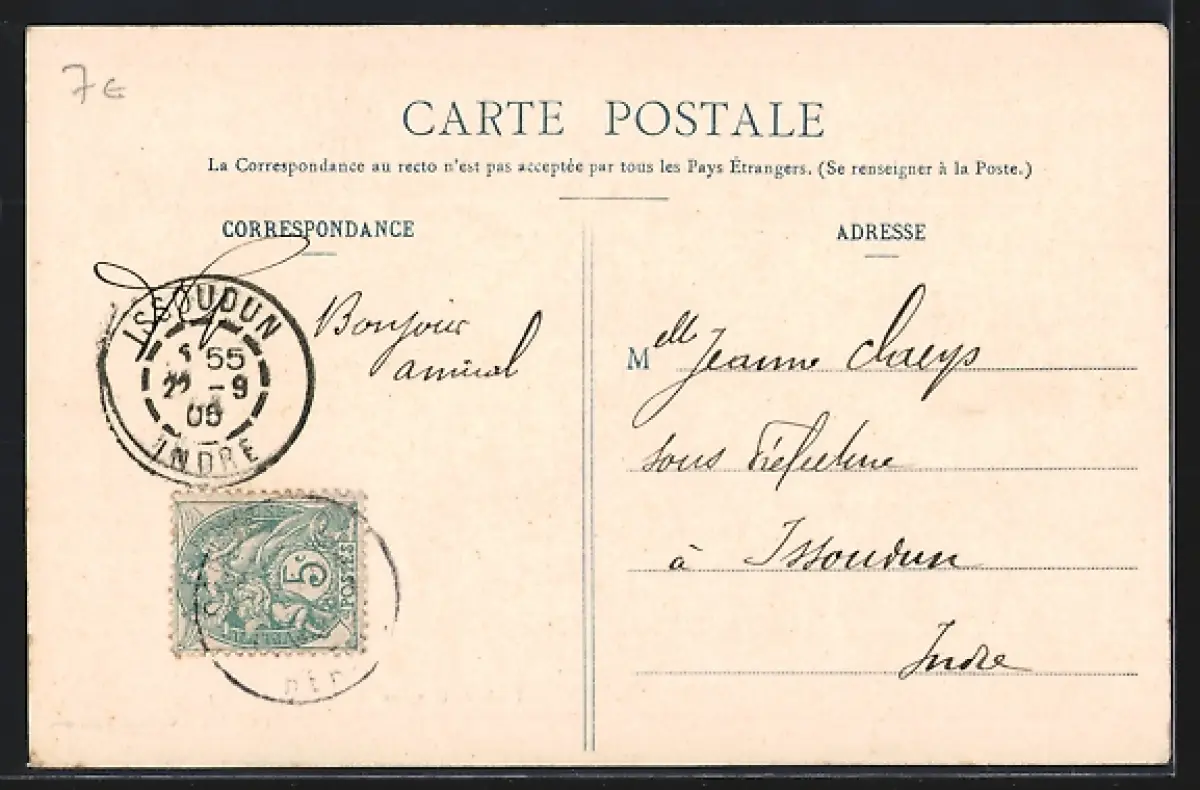 7 €
CARTE POSTALE
La Correspondance au recto n'est pas acceptée par tous les Pays Étrangers. (Se renseigner à la Poste.)
CORRESPONDANCE
ISSOUDUN
55
22 -9
05
INDRE
Bonjour
amical
5c
POSTES
ADRESSE
Melle Jeanne Claeys
sous Préfecture
à Issoudun
Indre